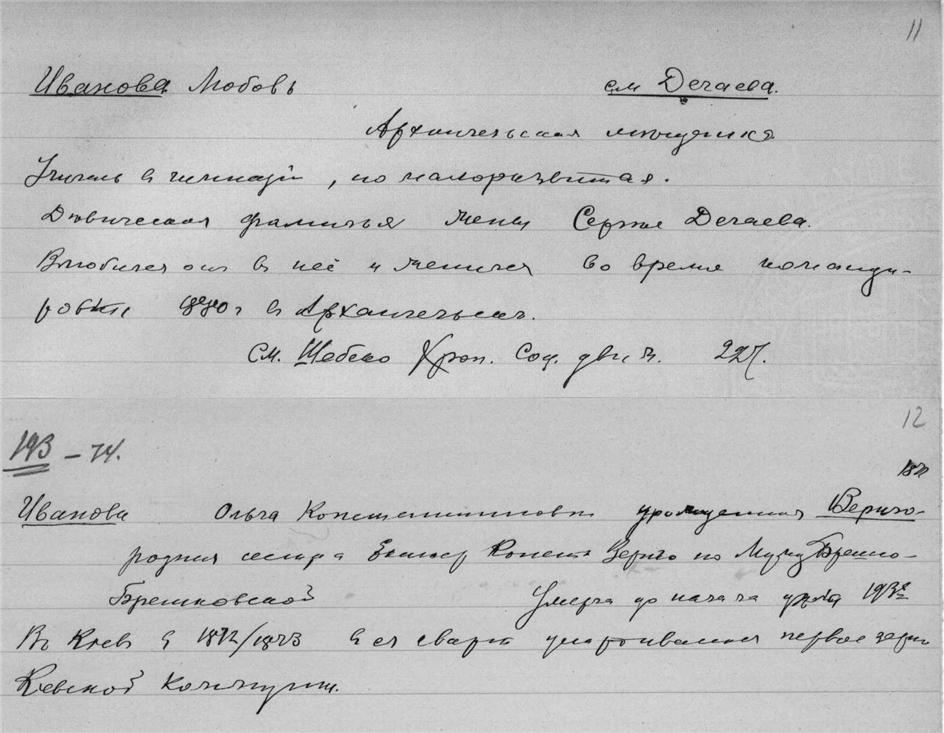 11
Иванова Любовь см Дегаева.
Архангельская мещанка
Училась в гимназии, но малоразвитая.
Девическая фамилья жены Сергея Дегаева.
Влюбился он в неё и женился во время команди-
ровки 1880 г в Архангельск.
см. Шебеко Хрон. Соц. движ. 227.
12
193 – 74.
Иванова Ольга Константиновна урожденная Вериго
родная сестра Екатер Конст Вериго по мужу Брешко-
Брешковской Умерла до начала
В Киеве в 1872/1873 в ея устраивалось первое
Киевской Коммуны.